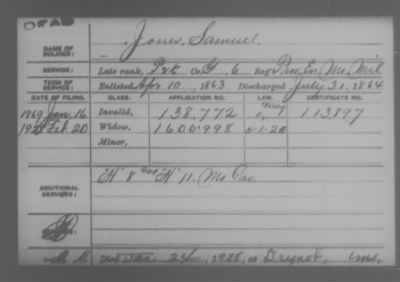 DEAD
NAME OF SOLDIER:
Jones, Samuel.
SERVICE:
Late rank, Pvt Co G, 6 Reg't Prov. En. Mo. Mil
TERM OF SERVICE:
Enlisted Apr. 10, 1863 Discharged July 31, 1864
DATE OF FILING. CLASS. APPLICATION NO. LAW. CERTIFICATE NO.
1869 Jan. 16 Invalid, 138,772 113,897
Feb. 20 Widow, 1600998 May 1-20
Minor,
ADDITIONAL SERVICES:
"H" 8 "H" 11. Mo Cav.
Died Jan. 24, 1928, at